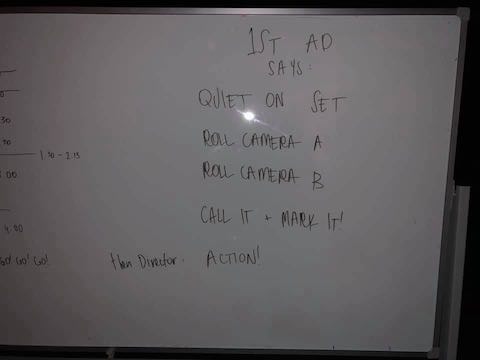 1ST AD
SAYS:
QUIET ON SET
ROLL CAMERA A
ROLL CAMERA B
CALL IT + MARK IT!
then Director: ACTION!
30
1.30 - 2.15
00
4.00
GO! GO!